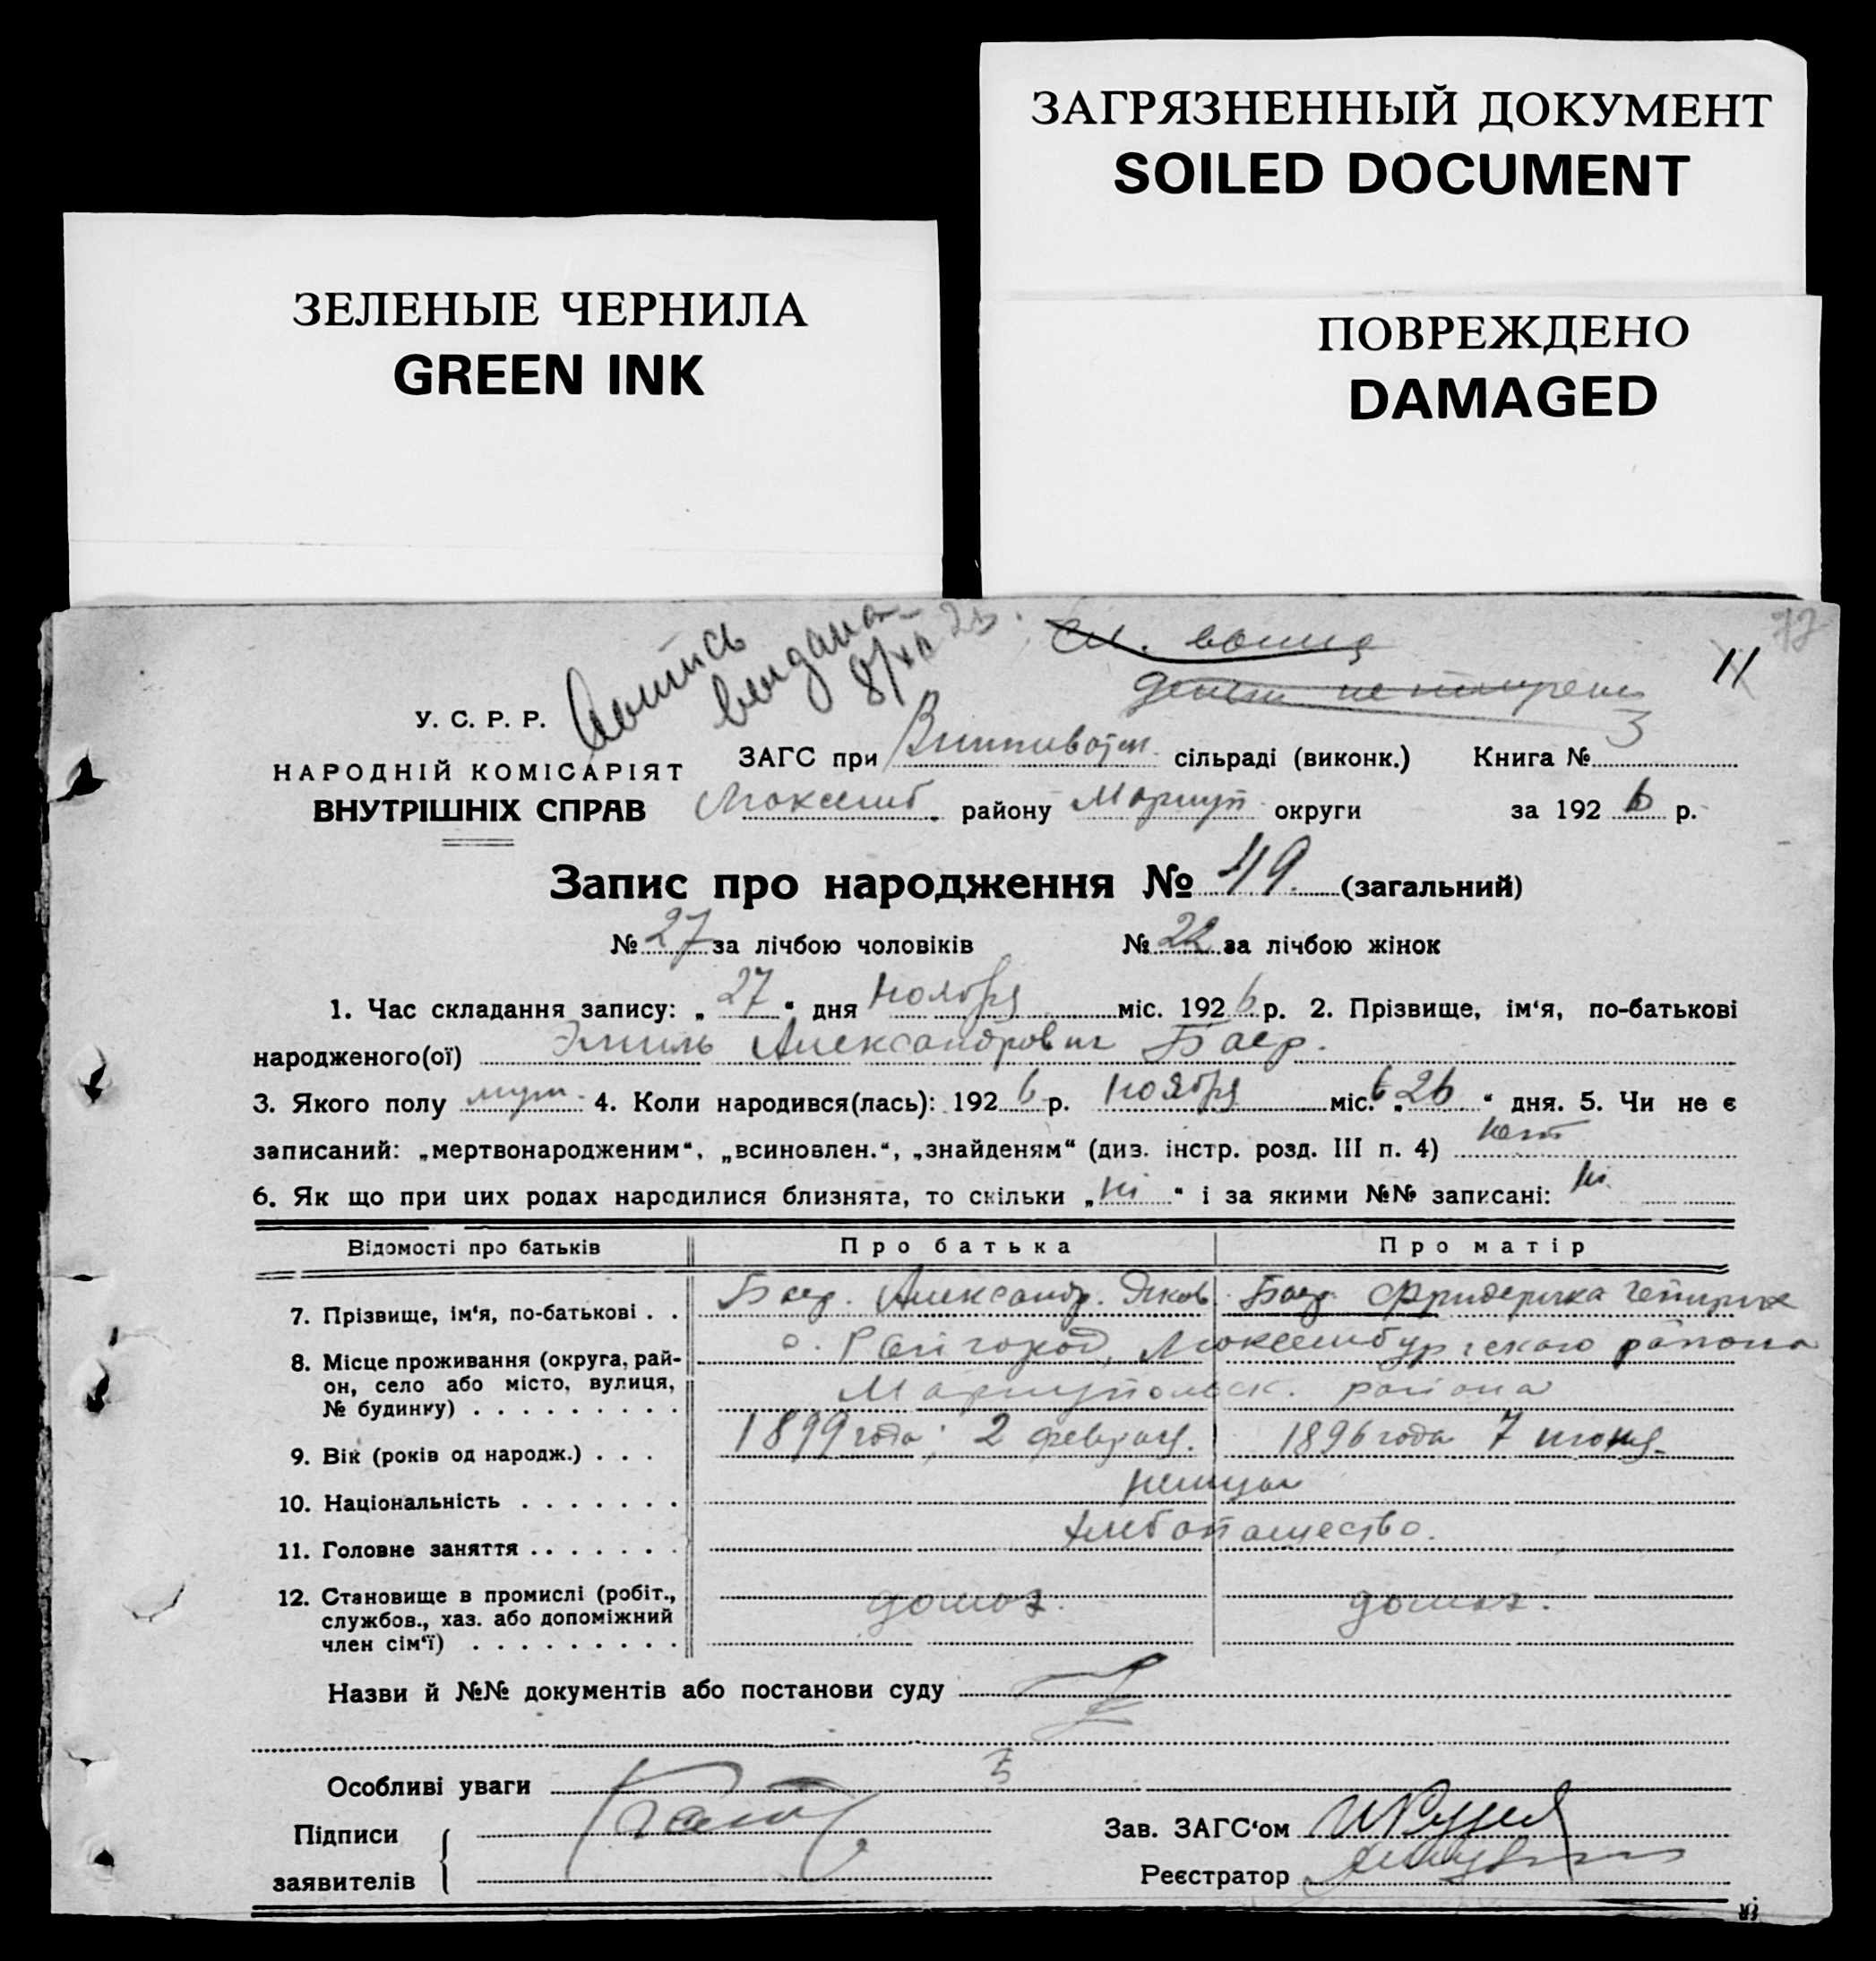 ЗАГРЯЗНЕННЫЙ ДОКУМЕНТ
SOILED DOCUMENT
ЗЕЛЕНЫЕ ЧЕРНИЛА
GREEN INK
ПОВРЕЖДЕНО
DAMAGED
выдана
11
У. С. Р. Р.
НАРОДНІЙ КОМІСАРІЯТ
ВНУТРІШНІХ СПРАВ
ЗАГС при сільраді (виконк.) Книга № 3
району Мариуп округи за 192 6 р.
Запис про народження № 49 (загальний)
№ 27 за лічбою чоловіків № 22 за лічбою жінок
1. Час складання запису: „ 27 “ дня ноября міс. 192 6 р. 2. Прізвище, ім‘я, по-батькові
народженого(ої) Эмиль Александрович Баер.
3. Якого полу муж. 4. Коли народився(лась): 192 6 р. ноября міс. „ 26 “ дня. 5. Чи не є
записаний: „мертвонародженим“, „всиновлен.“, „знайденям“ (див. інстр. розд. III п. 4) нет
6. Як що при цих родах народилися близнята, то скільки „ ні “ і за якими №№ записані: ні
Відомості про батьків Про батька Про матір
7. Прізвище, ім‘я, по-батькові . . Баер. Александр. Яков Баер Фридерика Генрих
8. Місце проживання (округа, рай-
он, село або місто, вулиця,
№ будинку) . . . . . . . . .
с. Райгород, Люксембургского района
Мариупольск. района
9. Вік (років од народж.) . . . 1899 года 2 феврал. 1896 года 7 июня
10. Національність . . . . . . . немцы
11. Головне заняття . . . . . . . хлебопашество.
12. Становище в промислі (робіт.,
службов., хаз. або допоміжний
член сім‘ї) . . . . . . . . .
домоз. домоз.
Назви й №№ документів або постанови суду
Особливі уваги
Підписи
заявителів
Зав. ЗАГС‘ом
Реєстратор